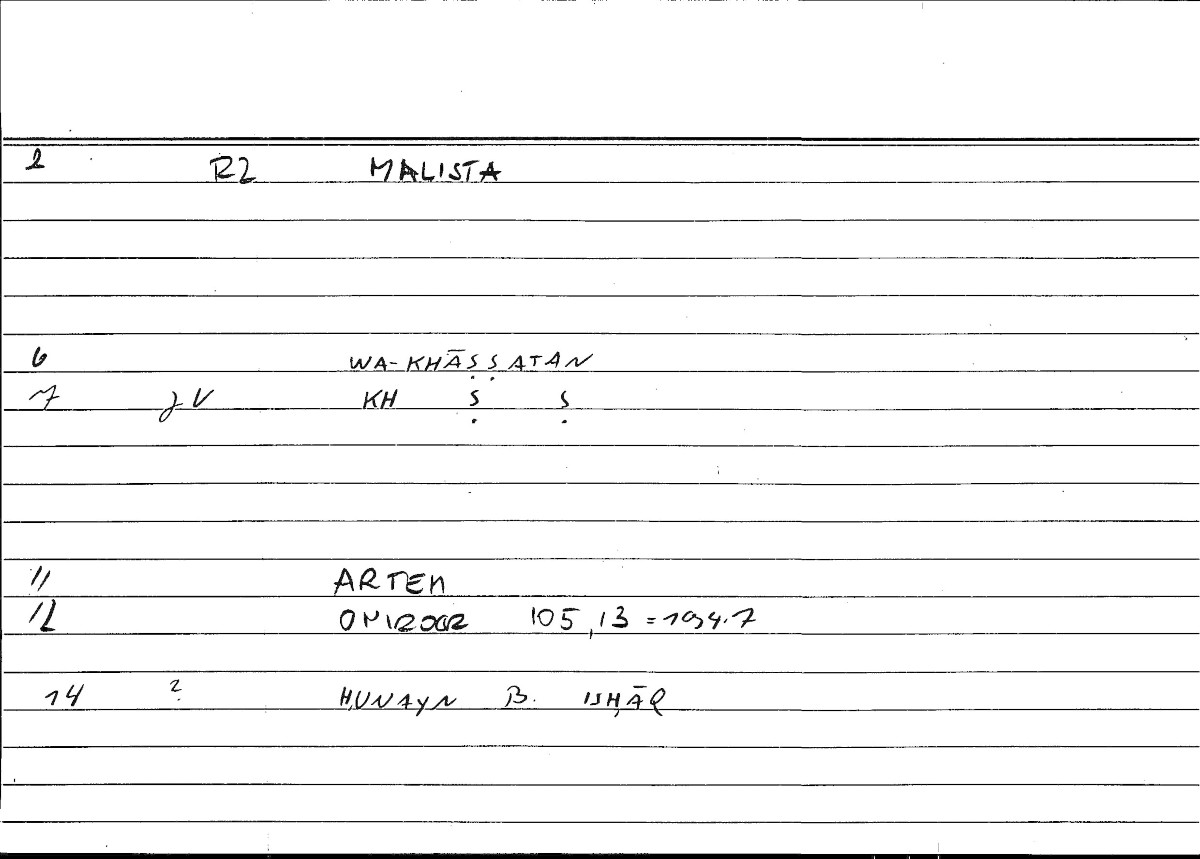 2 R2 MALISTA
6 WA-KHĀṢṢATAN
7 JV KH Ṣ Ṣ
11 ARTEM
12 105,13 = 194.7
14 ? ḤUNAYN B. ISḤĀQ